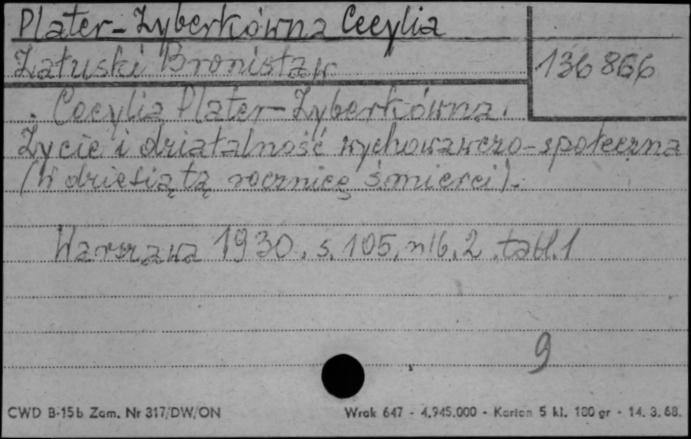 Plater-Zyberkówna Cecylia
Załuski Bronisław
136866
Cecylia Plater-Zyberkówna.
Życie i działalność wychowawczo-społeczna
(W dziesiątą rocznicę śmierci).
Warszawa 1930, s. 105, nlb. 2, tabl. 1
9
CWD B-15b Zam. Nr 317/DW/ON
Wrak 647 - 4.945.000 - Karton 5 kl. 180 gr - 14. 3. 68.